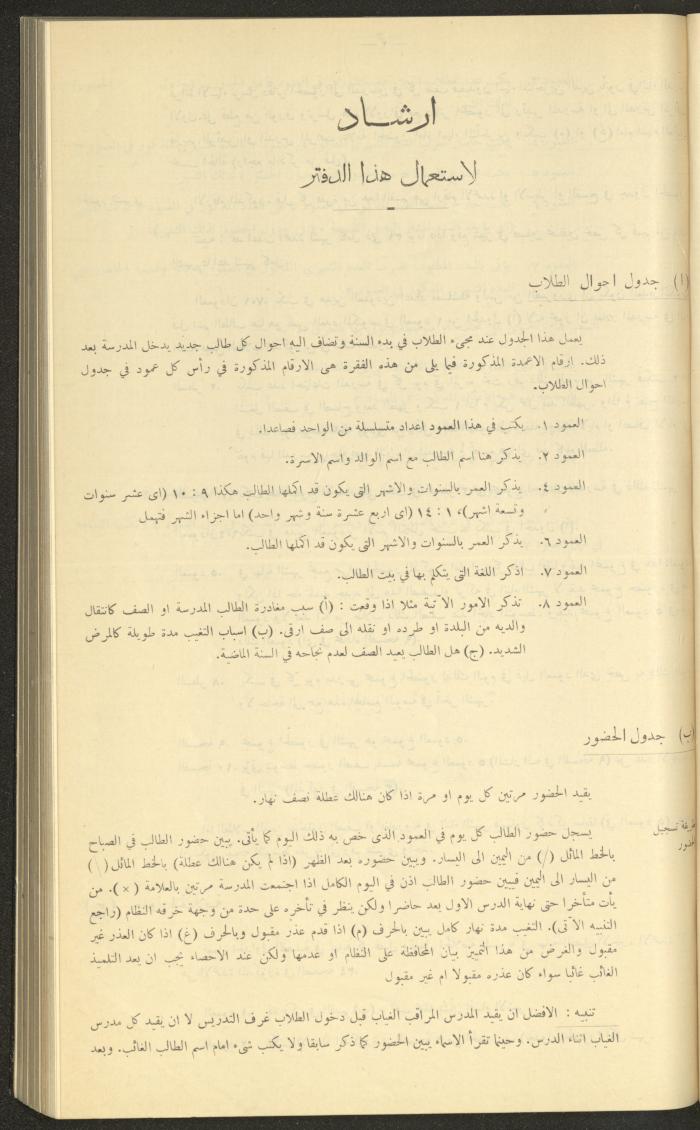 ارشاد
لاستعمال هذا الدفتر
(ا) جدول احوال الطلاب
يعمل هذا الجدول عند مجىء الطلاب في بدء السنة وتضاف اليه احوال كل طالب جديد يدخل المدرسة بعد
ذلك. ارقام الاعمدة المذكورة فيما يلى من هذه الفقرة هى الارقام المذكورة في رأس كل عمود في جدول
احوال الطلاب.
العمود ١. يكتب في هذا العمود اعداد متسلسلة من الواحد فصاعدا.
العمود ٢. يذكر هنا اسم الطالب مع اسم الوالد واسم الاسرة.
العمود ٤. يذكر العمر بالسنوات والاشهر التى يكون قد اكملها الطالب هكذا ٩ : ١٠ (اى عشر سنوات
وتسعة اشهر)، ١ : ١٤ (اى اربع عشرة سنة وشهر واحد) اما اجزاء الشهر فتهمل
العمود ٦. يذكر العمر بالسنوات والاشهر التى يكون قد اكملها الطالب.
العمود ٧. اذكر اللغة التى يتكلم بها في بيت الطالب.
العمود ٨. تذكر الامور الآتية مثلا اذا وقعت : (أ) سبب مغادرة الطالب المدرسة او الصف كانتقال
والديه من البلدة او طرده او نقله الى صف ارقى. (ب) اسباب التغيب مدة طويلة كالمرض
الشديد. (ج) هل الطالب يعيد الصف لعدم نجاحه في السنة الماضية.
(ب) جدول الحضور
يقيد الحضور مرتين كل يوم او مرة اذا كان هنالك عطلة نصف نهار.
طريقة تسجيل
الحضور
يسجل حضور الطالب كل يوم في العمود الذى خص به ذلك اليوم كما يأتى. يبين حضور الطالب في الصباح
بالخط المائل (/) من اليمين الى اليسار. ويبين حضوره بعد الظهر (اذا لم يكن هنالك عطلة) بالخط المائل (\)
من اليسار الى اليمين فيبين حضور الطالب اذن في اليوم الكامل اذا اجتمعت المدرسة مرتين بالعلامة (×). من
يأت متأخرا حتى نهاية الدرس الاول يعد حاضرا ولكن ينظر في تأخره على حدة من وجهة خرقه النظام (راجع
التنبيه الآتى). التغيب مدة نهار كامل يبين بالحرف (م) اذا قدم عذر مقبول وبالحرف (غ) اذا كان العذر غير
مقبول والغرض من هذا التميز بيان المحافظة على النظام او عدمها ولكن عند الاحصاء يجب ان يعد التلميذ
الغائب غائبا سواء كان عذره مقبولا ام غير مقبول
تنبيه : الافضل ان يقيد المدرس المراقب الغياب قبل دخول الطلاب غرف التدريس لا ان يقيد كل مدرس
الغياب اثناء الدرس. وحينما تقرأ الاسماء يبين الحضور كما ذكر سابقا ولا يكتب شىء امام اسم الطالب الغائب. وبعد